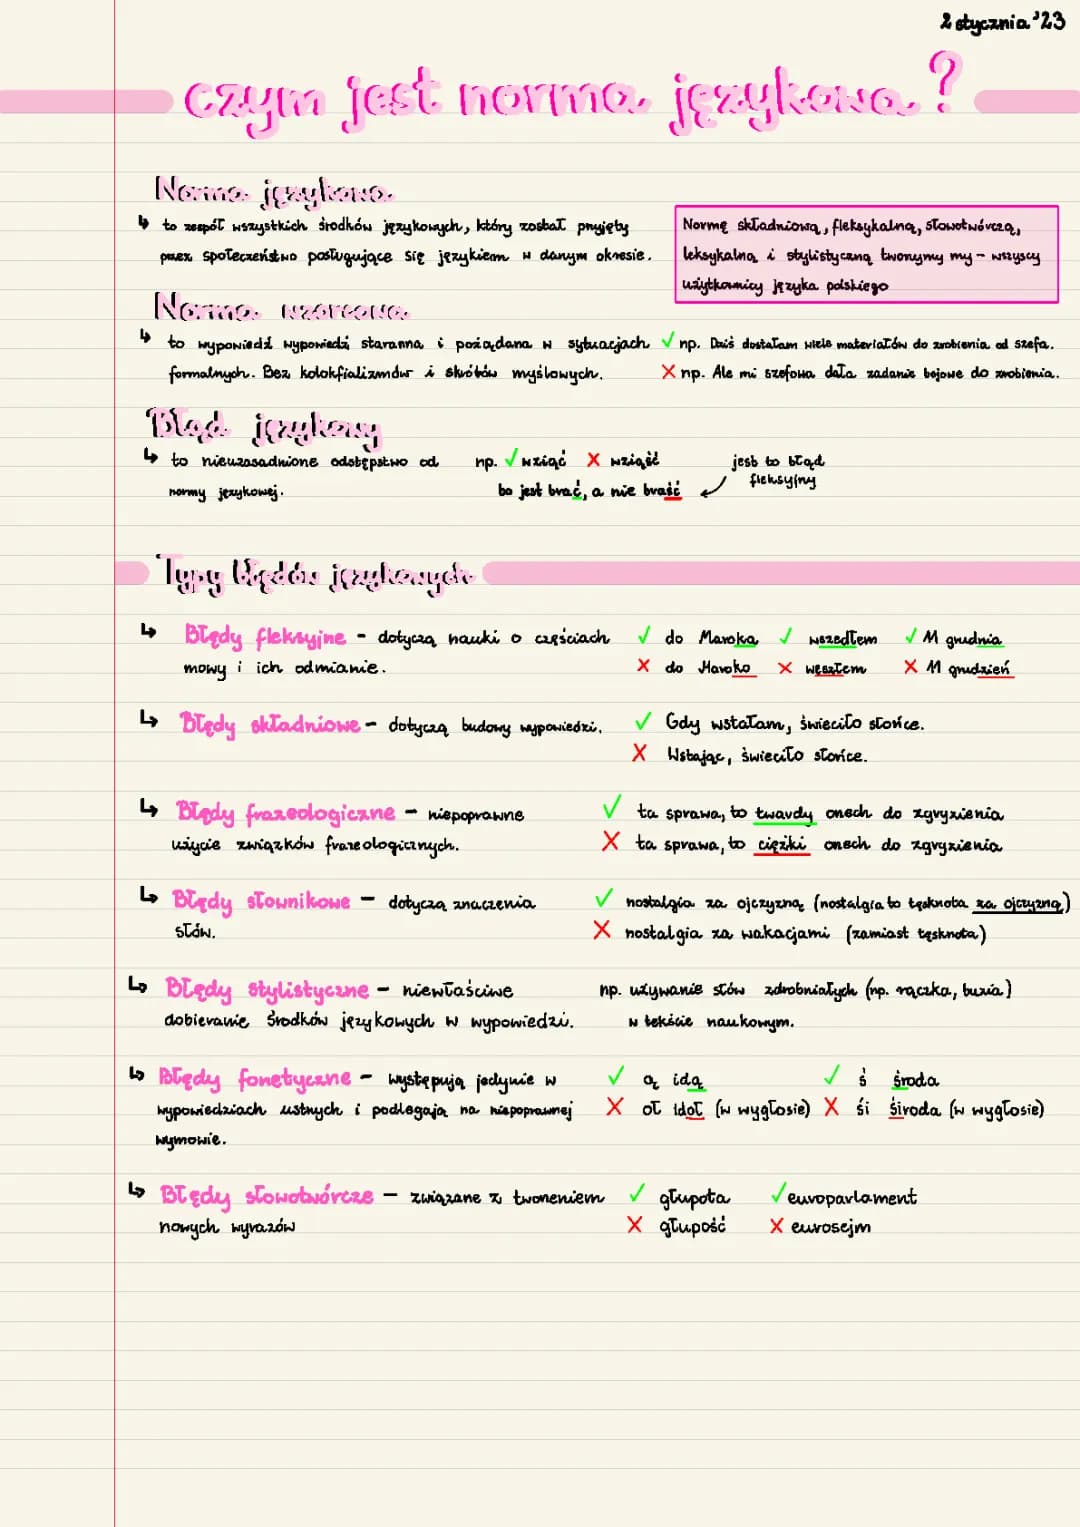 2 stycznia '23
czym jest norma językowa?
Norma językowa
↳ to zespół wszystkich środków językowych, który został przyjęty
przez społeczeństwo posługujące się językiem w danym okresie.
Normę składniową, fleksykalną, słowotwórczą,
leksykalną i stylistyczną tworzymy my - wszyscy
użytkownicy języka polskiego
Norma wzorcowa
↳ to wypowiedź wypowiedź staranna i pożądana w sytuacjach ✓ np. Dziś dostałam wiele materiałów do zrobienia od szefa.
formalnych. Bez kolokfializmów i skrótów myślowych. X np. Ale mi szefowa dała zadanie bojowe do zrobienia.
Błąd językowy
↳ to nieuzasadnione odstępstwo od np. ✓ wziąć X wziąść jest to błąd
normy językowej. bo jest brać, a nie braść fleksyjny
Typy błędów językowych
↳ Błędy fleksyjne - dotyczą nauki o częściach ✓ do Maroka ✓ wszedłem ✓ 11 grudnia
mowy i ich odmianie. X do Maroko X weszłem X 11 grudzień
↳ Błędy składniowe - dotyczą budowy wypowiedzi. ✓ Gdy wstałam, świeciło słońce.
X Wstając, świeciło słońce.
↳ Błędy frazeologiczne - niepoprawne ✓ ta sprawa, to twardy orzech do zgryzienia
użycie związków frazeologicznych. X ta sprawa, to ciężki orzech do zgryzienia
↳ Błędy słownikowe - dotyczą znaczenia ✓ nostalgia za ojczyzną (nostalgia to tęsknota za ojczyzną)
słów. X nostalgia za wakacjami (zamiast tęsknota)
↳ Błędy stylistyczne - niewłaściwe np. używanie słów zdrobniałych (np. rączka, buzia)
dobieranie środków językowych w wypowiedzi. w tekście naukowym.
↳ Błędy fonetyczne - występują jedynie w ✓ ą idą ✓ ś środa
wypowiedziach ustnych i podlegają na niepoprawnej X oł idoł (w wygłosie) X śi śiroda (w wygłosie)
wymowie.
↳ Błędy słowotwórcze - związane z tworzeniem ✓ głupota ✓ europarlament
nowych wyrazów X głupość X eurosejm